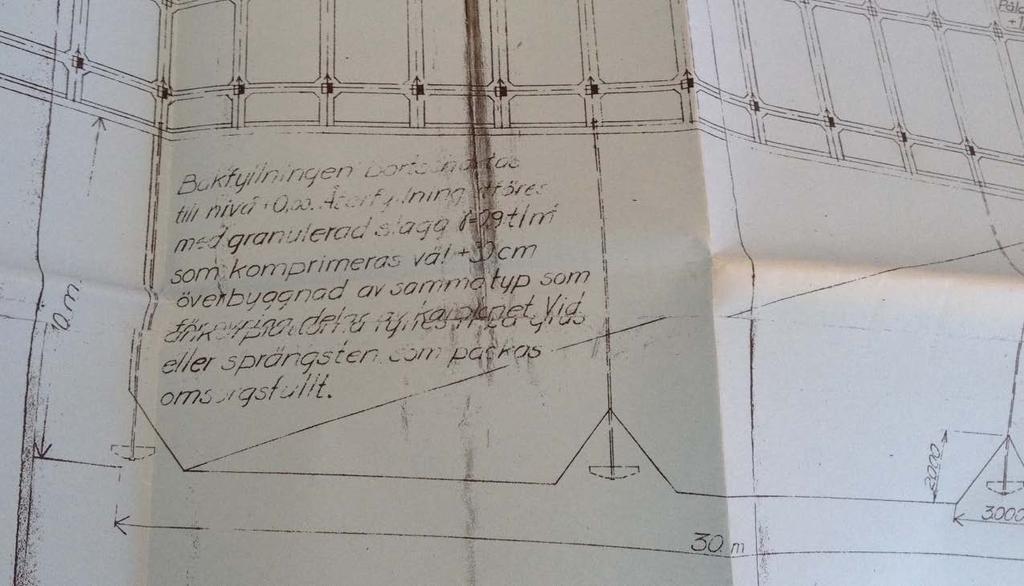 Bakfyllningen bortschaktas
till nivå +0,00. Återfyllning utföres
med granulerad slagg t/m³
som komprimeras väl + cm
överbyggnad av samma typ som
för övriga delar av kajplanet. Vid
ankarplattorna fylles med grus
eller sprängsten som packas
omsorgsfullt.
10 m.
30 m
3.000
3.000